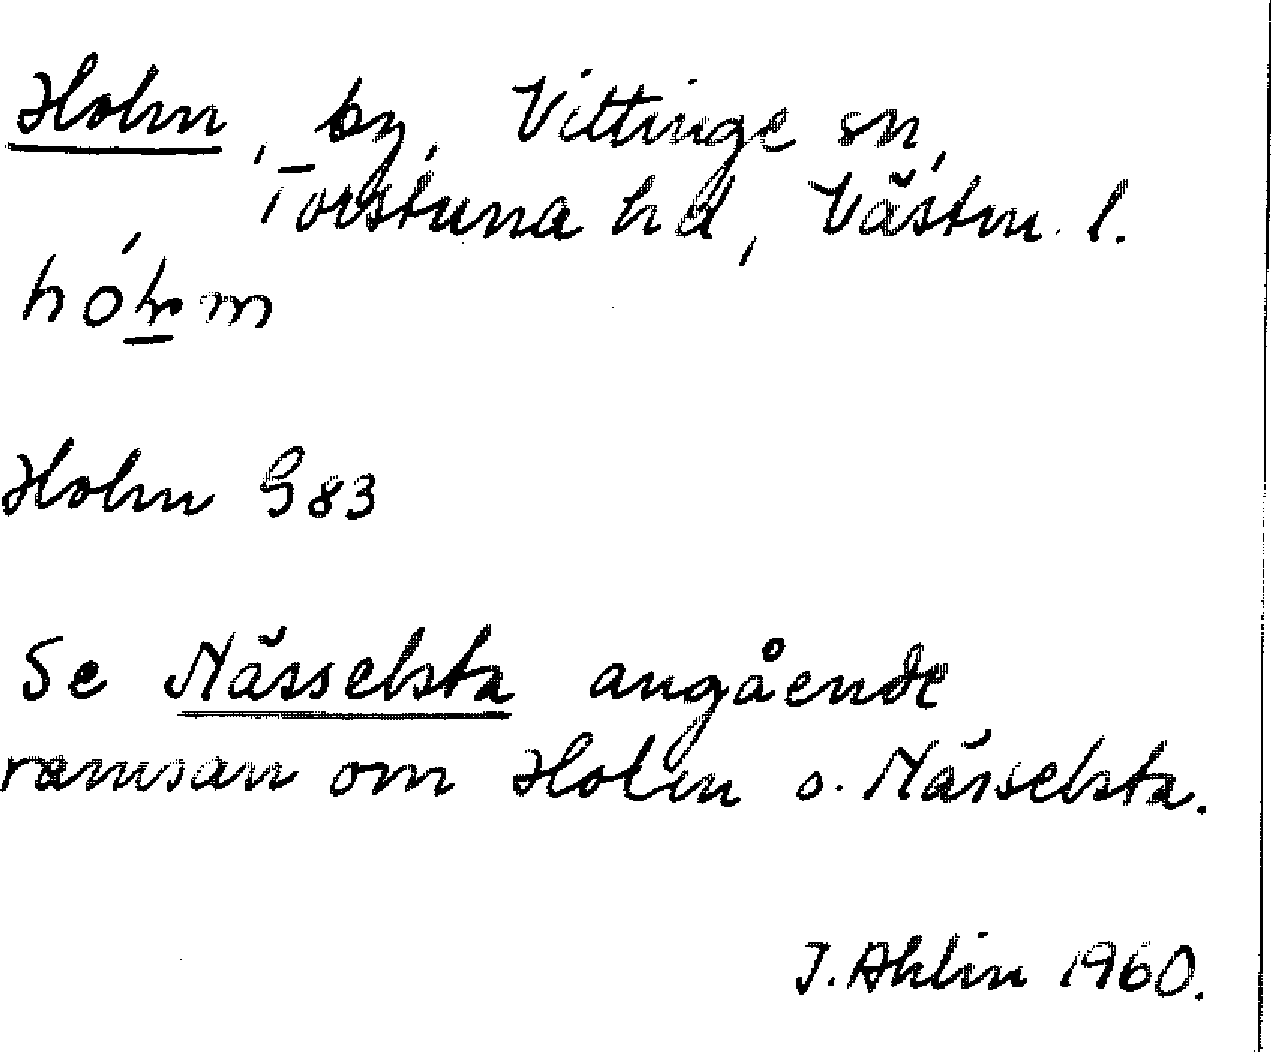 Holm, by, Vittinge sn,
Torstuna hd, Västm. l.
Holm G 83
Se Nässelsta angående
ramsan om Holm o. Nässelsta.
J. Ahlin 1960.